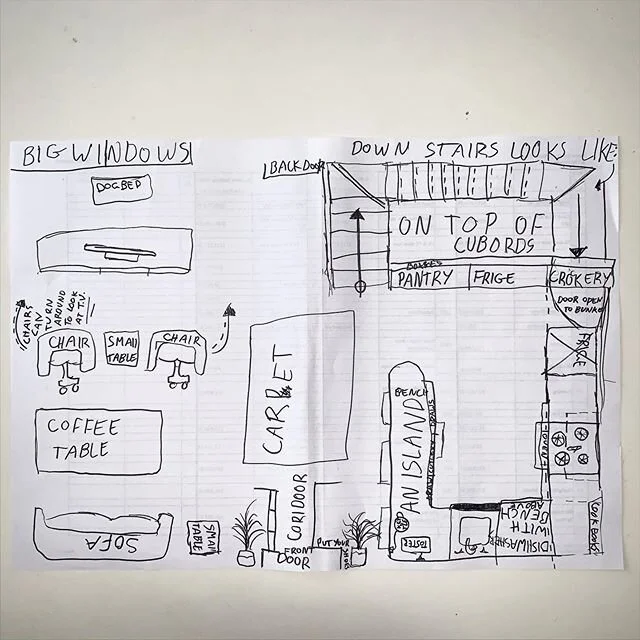 BIG WINDOWS
DOWN STAIRS LOOKS LIKE:
BACK DOOR
DOGBED
ON TOP OF
CUBORDS
PANTRY
FRIGE
CROKERY
DOOR OPEN
TO BUNKER
CHAIRS
CAN
TURN
AROUND
TO LOOK
AT TV.
CHAIR
SMALL
TABLE
CHAIR
FRIGE
CARPET
BENCH
AN ISLAND
COFFEE
TABLE
CORIDOOR
SOFA
SMALL
TABLE
FRONT
DOOR
PUT YOUR
TOSTER
DISHWASHER
WITH
BENCH
ABOVE
COOK BOOKS